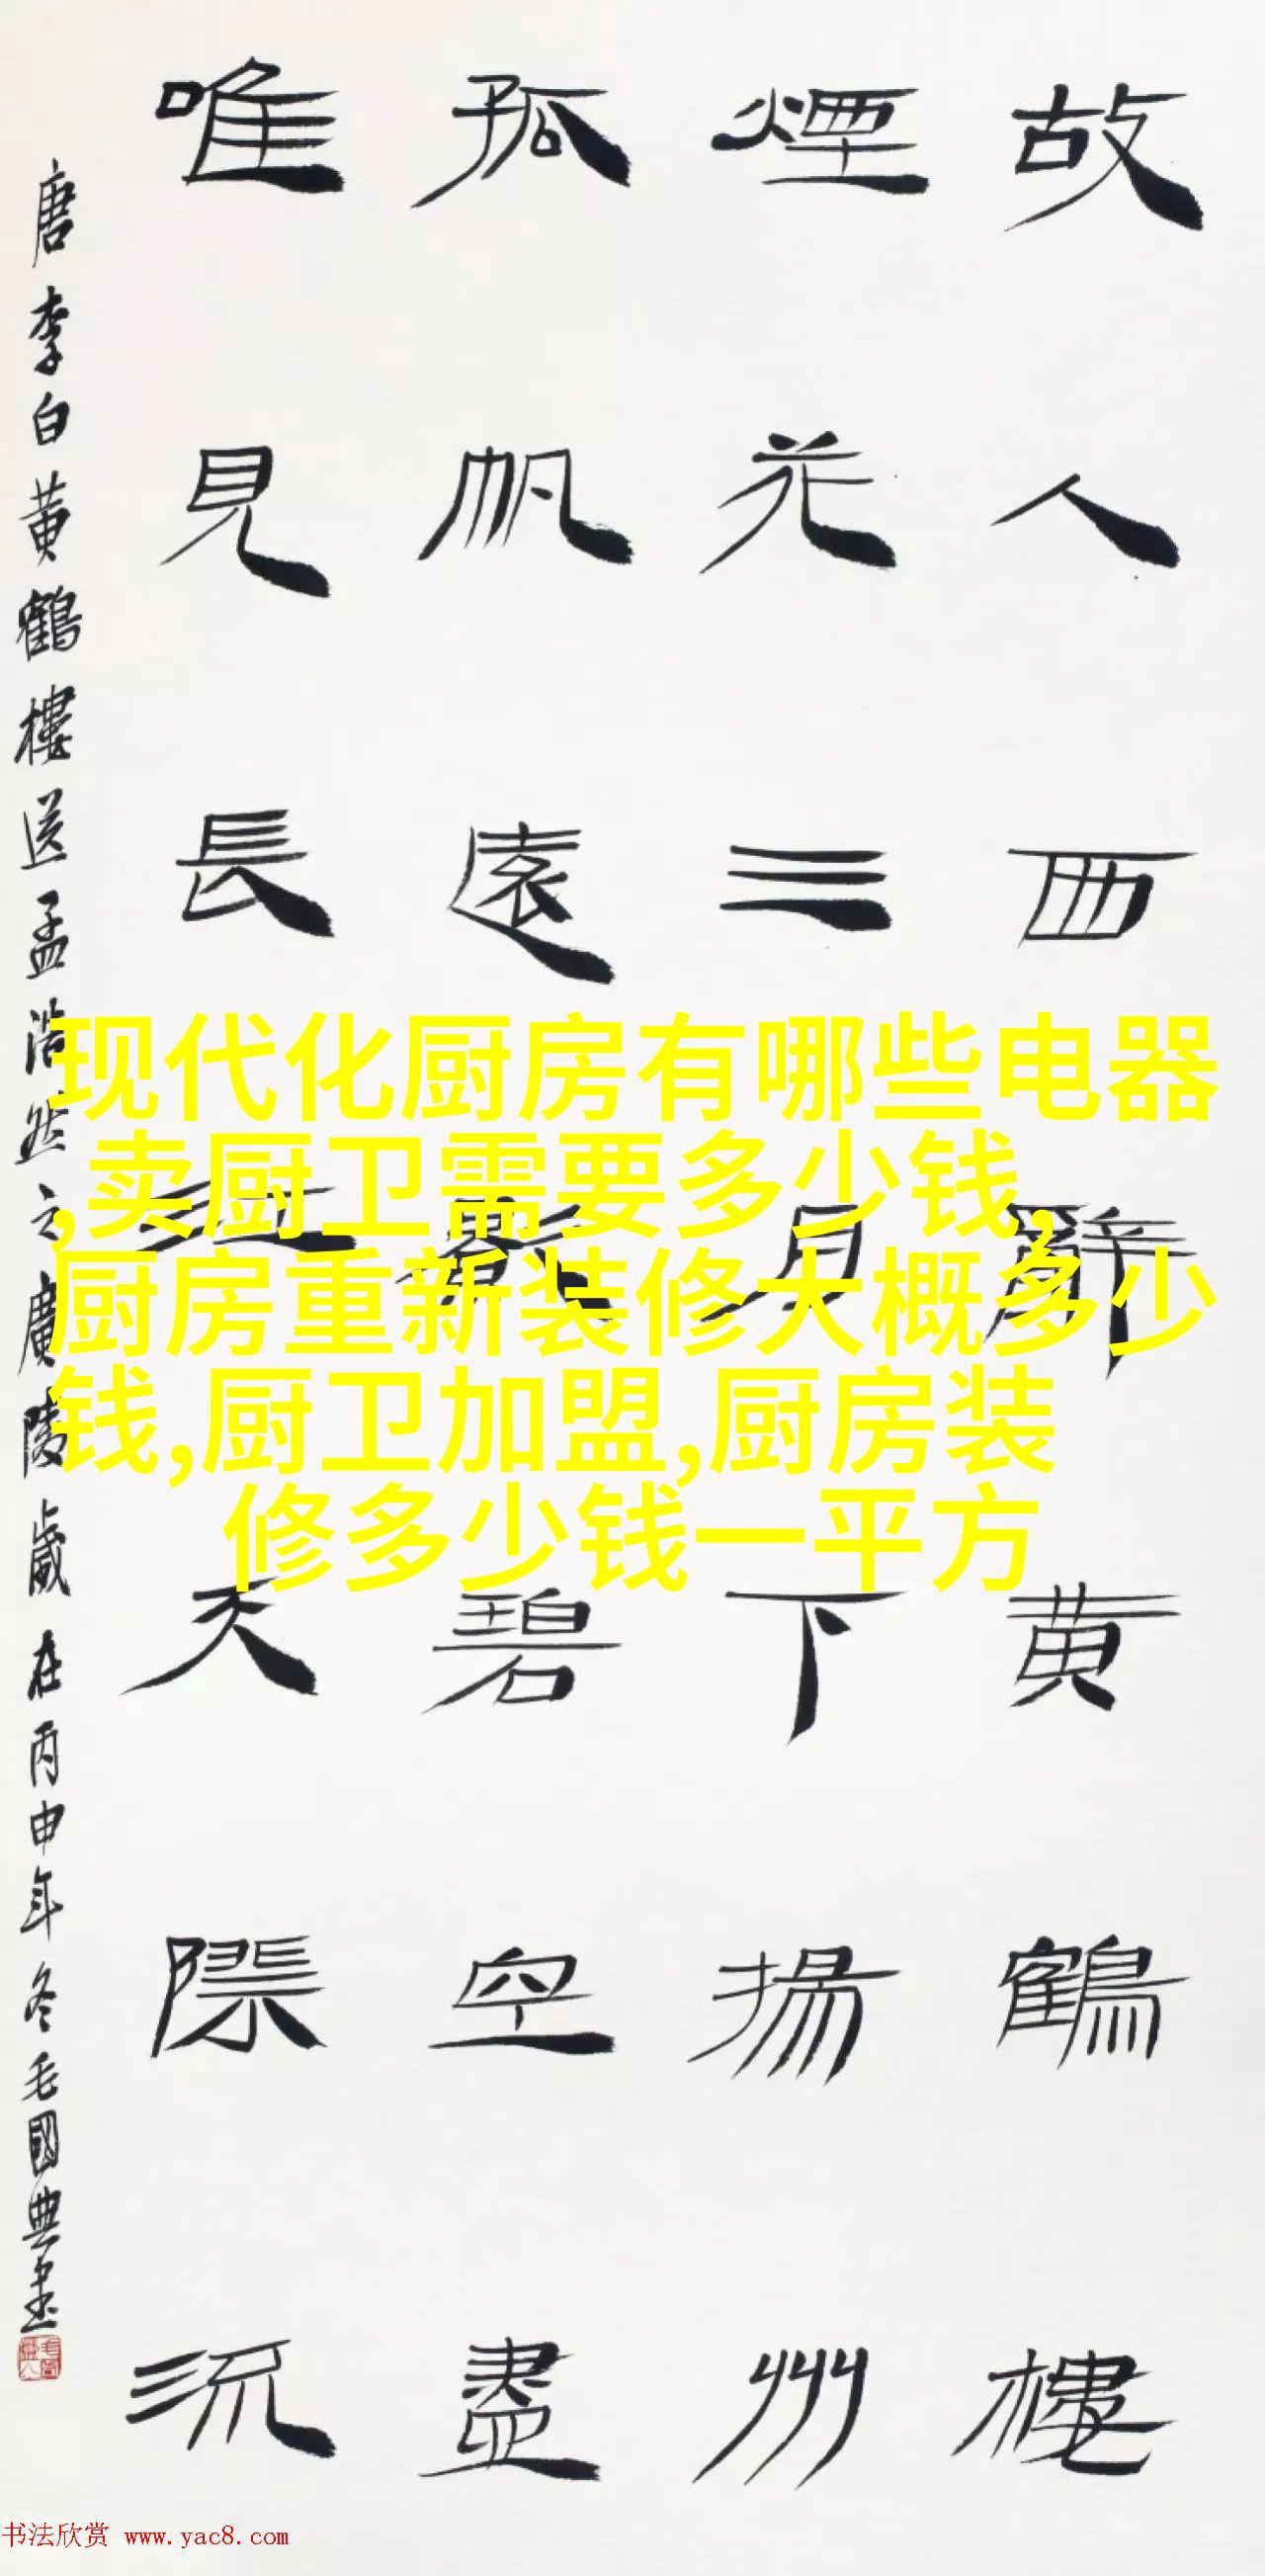 故人西辭黄鶴樓
煙花三月下揚州
孤帆遠影碧空盡
唯見長江天際流
唐李白黄鶴樓送孟浩然之廣陵歲在丙申年冬毛國典書
现代化厨房有哪些电器
,卖厨卫需要多少钱,
厨房重新装修大概多少
钱,厨卫加盟,厨房装
修多少钱一平方
书法欣赏 www.yac8.com